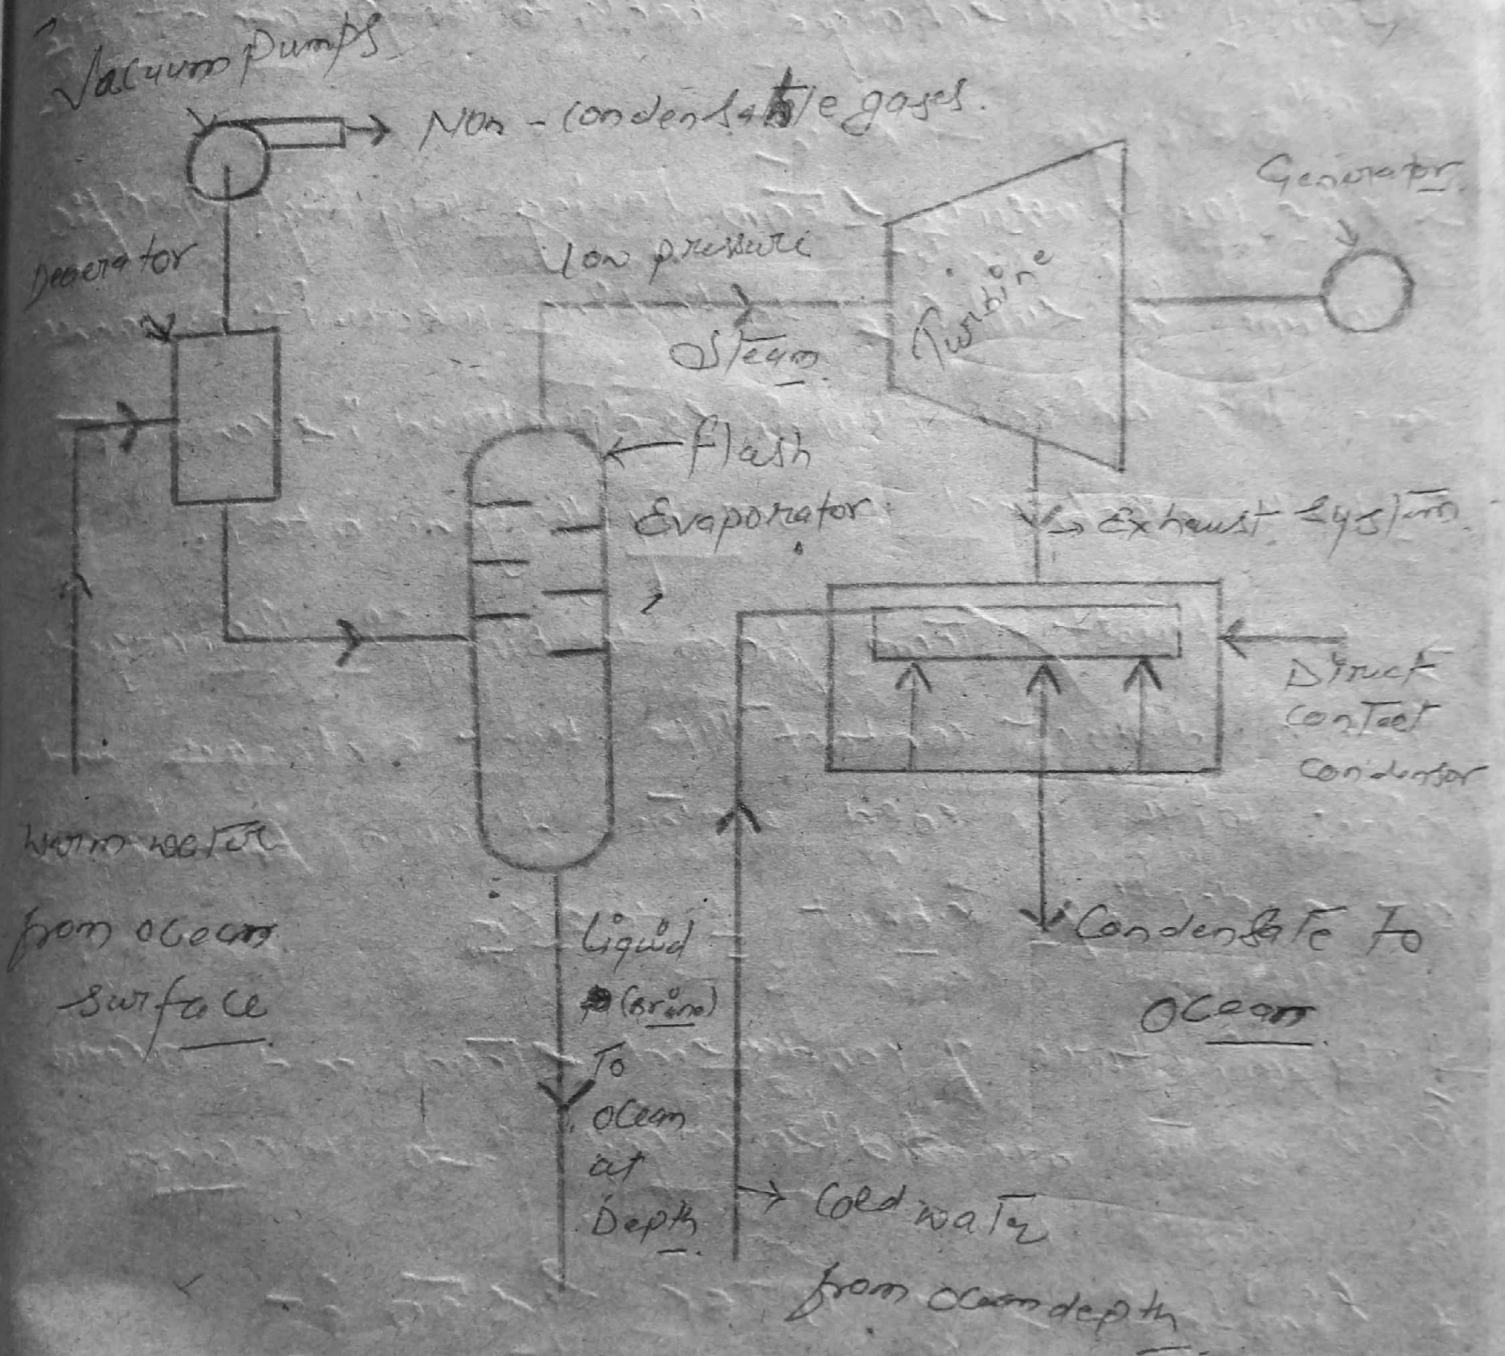 Vacuum Pumps
Non-condensable gases.
Generator.
Deaerator
low pressure
Steam.
Turbine
Flash
Evaporator
Exhaust System.
Direct
contact
condensor
warm water
from ocean
surface
Liquid
(Brine)
To
ocean
at
Depth.
Condensate to
ocean.
Cold water
from ocean depth